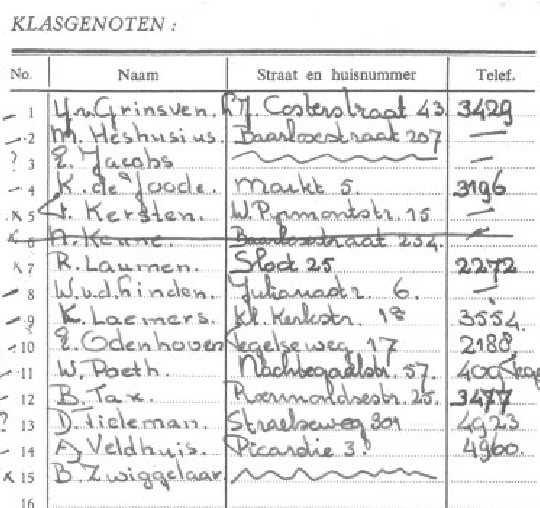 KLASGENOTEN :
No. Naam Straat en huisnummer Telef.
1 Y. v. Grinsven. L.J. Costerstraat 43 3429
2 M. Heshusius. Baarlosestraat 207 —
3 E. Jacobs —
4 K. de Joode. Markt 5. 3196
5 Kersten. W. Pyrmontstr. 15 —
6 Baarlosestraat 234. —
7 R. Laumen. Slot 25 2272
8 W. v. d. Linden. Julianastr. 6. —
9 K. Laemers. Kl. Kerkstr. 18 3554
10 E. Odenhoven Tegelseweg 17 2188
11 W. Poeth. Nachtegaalstr. 57.
12 B. Tax. Roermondsestr. 25. 3477
13 D. Tieleman. Straelseweg 301 4923
14 A. Veldhuis. Picardie 3. 4960.
15 B. Zwiggelaar
16